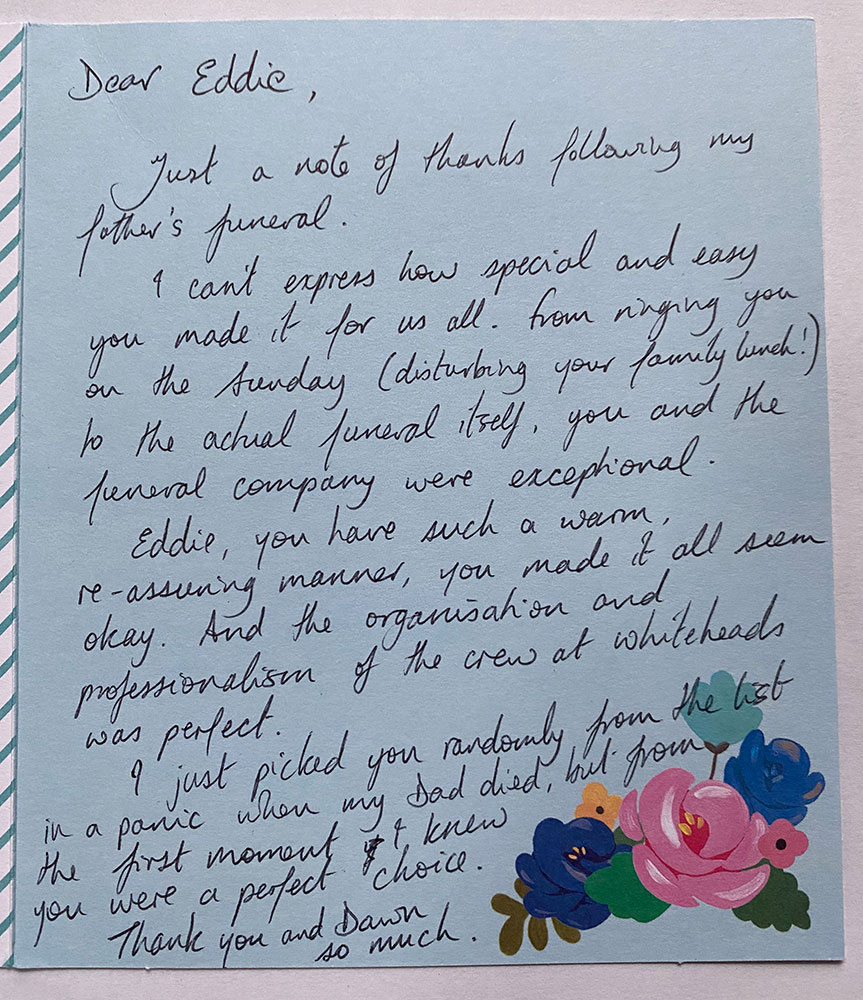 Dear Eddie,
Just a note of thanks following my
father's funeral.
I can't express how special and easy
you made it for us all. From ringing you
on the Sunday (disturbing your family lunch!)
to the actual funeral itself, you and the
funeral company were exceptional.
Eddie, you have such a warm,
re-assuring manner, you made it all seem
okay. And the organisation and
professionalism of the crew at whiteheads
was perfect.
I just picked you randomly from the list
in a panic when my Dad died, but from
the first moment I knew
you were a perfect choice.
Thank you and Dawn
so much.